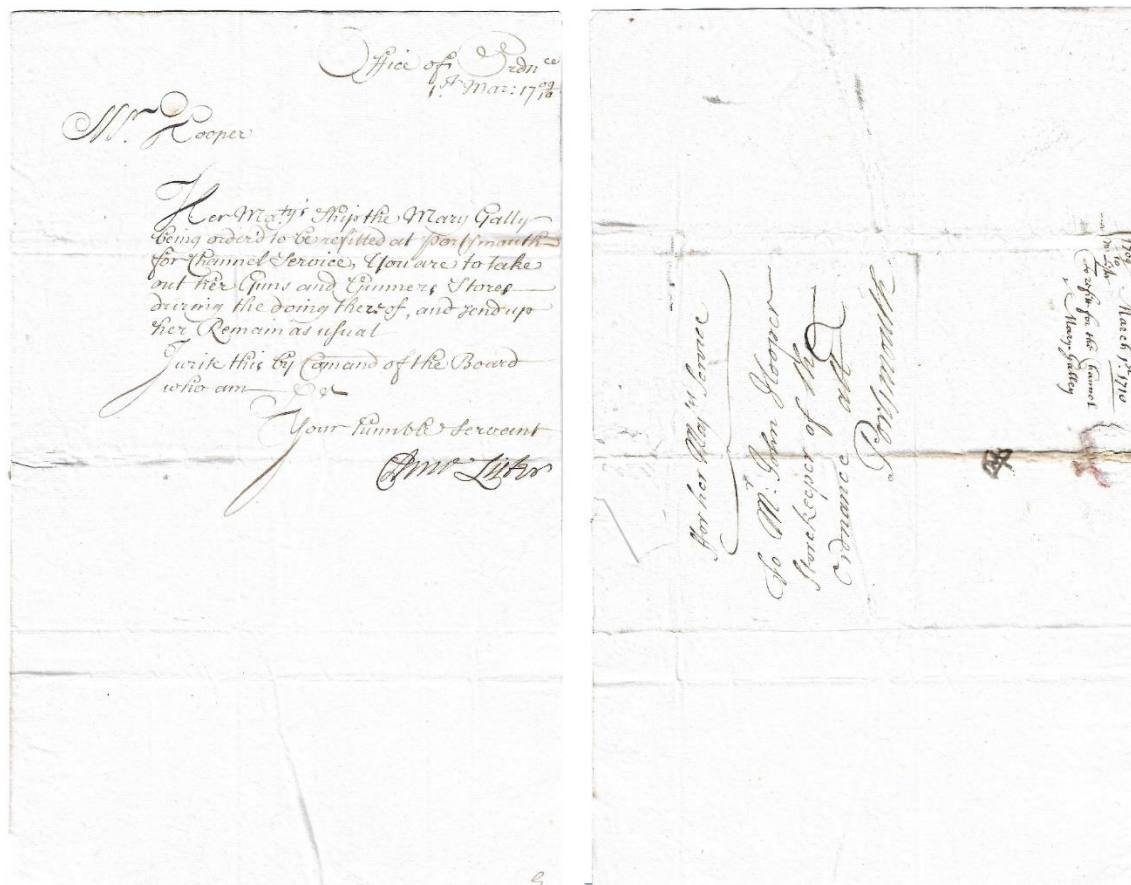 Office of Ordnce
1st Mar: 1709/10
Mr. Hooper
Her Matys Ship the Mary Gally
being order'd to be refitted at Portsmouth
for Channel Service, You are to take
out her Guns and Gunners Stores
during the doing thereof, and send up
her Remain as usual
I write this by Comand of the Board
who am
Your humble Servant
ffor her Majts Service
To Mr. John Hooper
Storekeeper of the
Ordnance att
Portsmouth
March 1st. 1710
to refitt for the Channel
Mary Galley